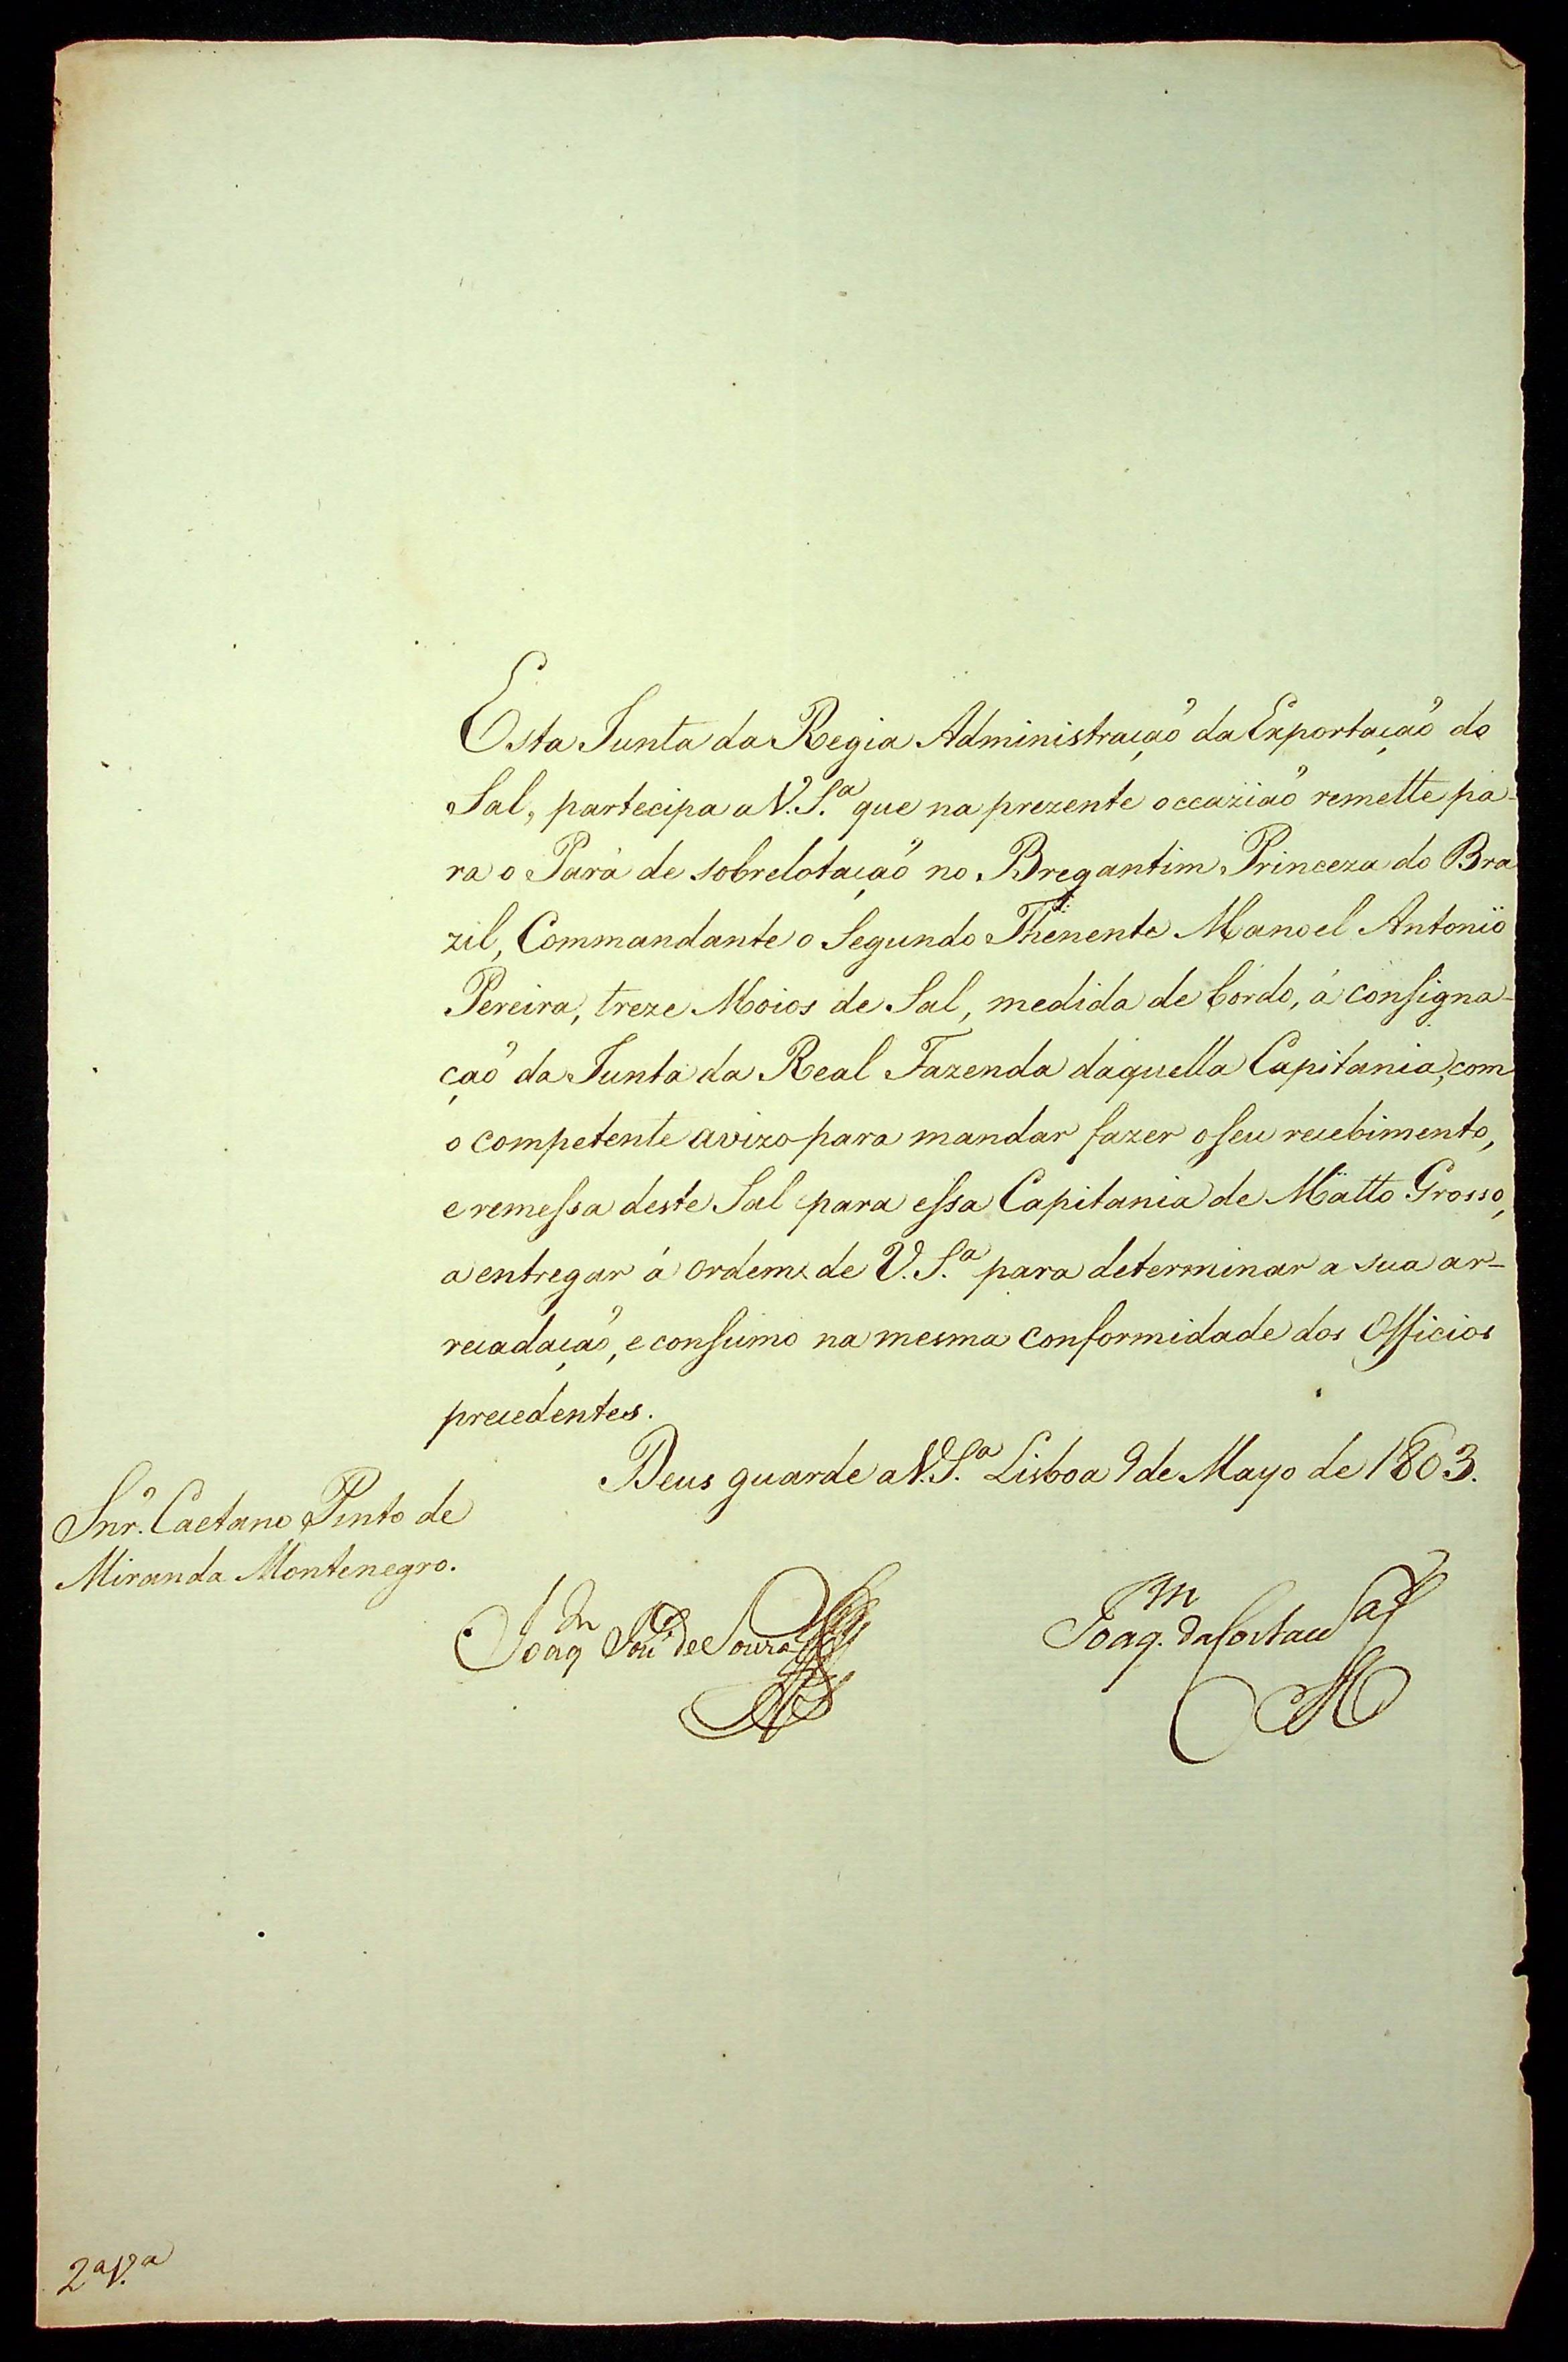 Esta Junta da Regia Administração da Exportação do
Sal, partecipa a V. S.ª que na prezente occazião remette pa-
ra o Pará de sobrelotação no Bregantim Princeza do Bra
zil, Commandante o Segundo Thenente Manoel Antonio
Pereira, treze Moios de Sal, medida de bordo, á consigna-
ção da Junta da Real Fazenda daquella Capitania, com
o competente avizo para mandar fazer o seu recebimento,
e remessa deste Sal para essa Capitania de Matto Grosso,
a entregar á ordem de V. S.ª para determinar a sua ar-
recadação, e consumo na mesma conformidade dos Officios
precedentes.
Deus guarde a V. S.ª Lisboa 9 de Mayo de 1803.
Snr. Caetano Pinto de
Miranda Montenegro.
Joaq.m de Souza
Joaq.m da Costa e Sa
2ª V.ª